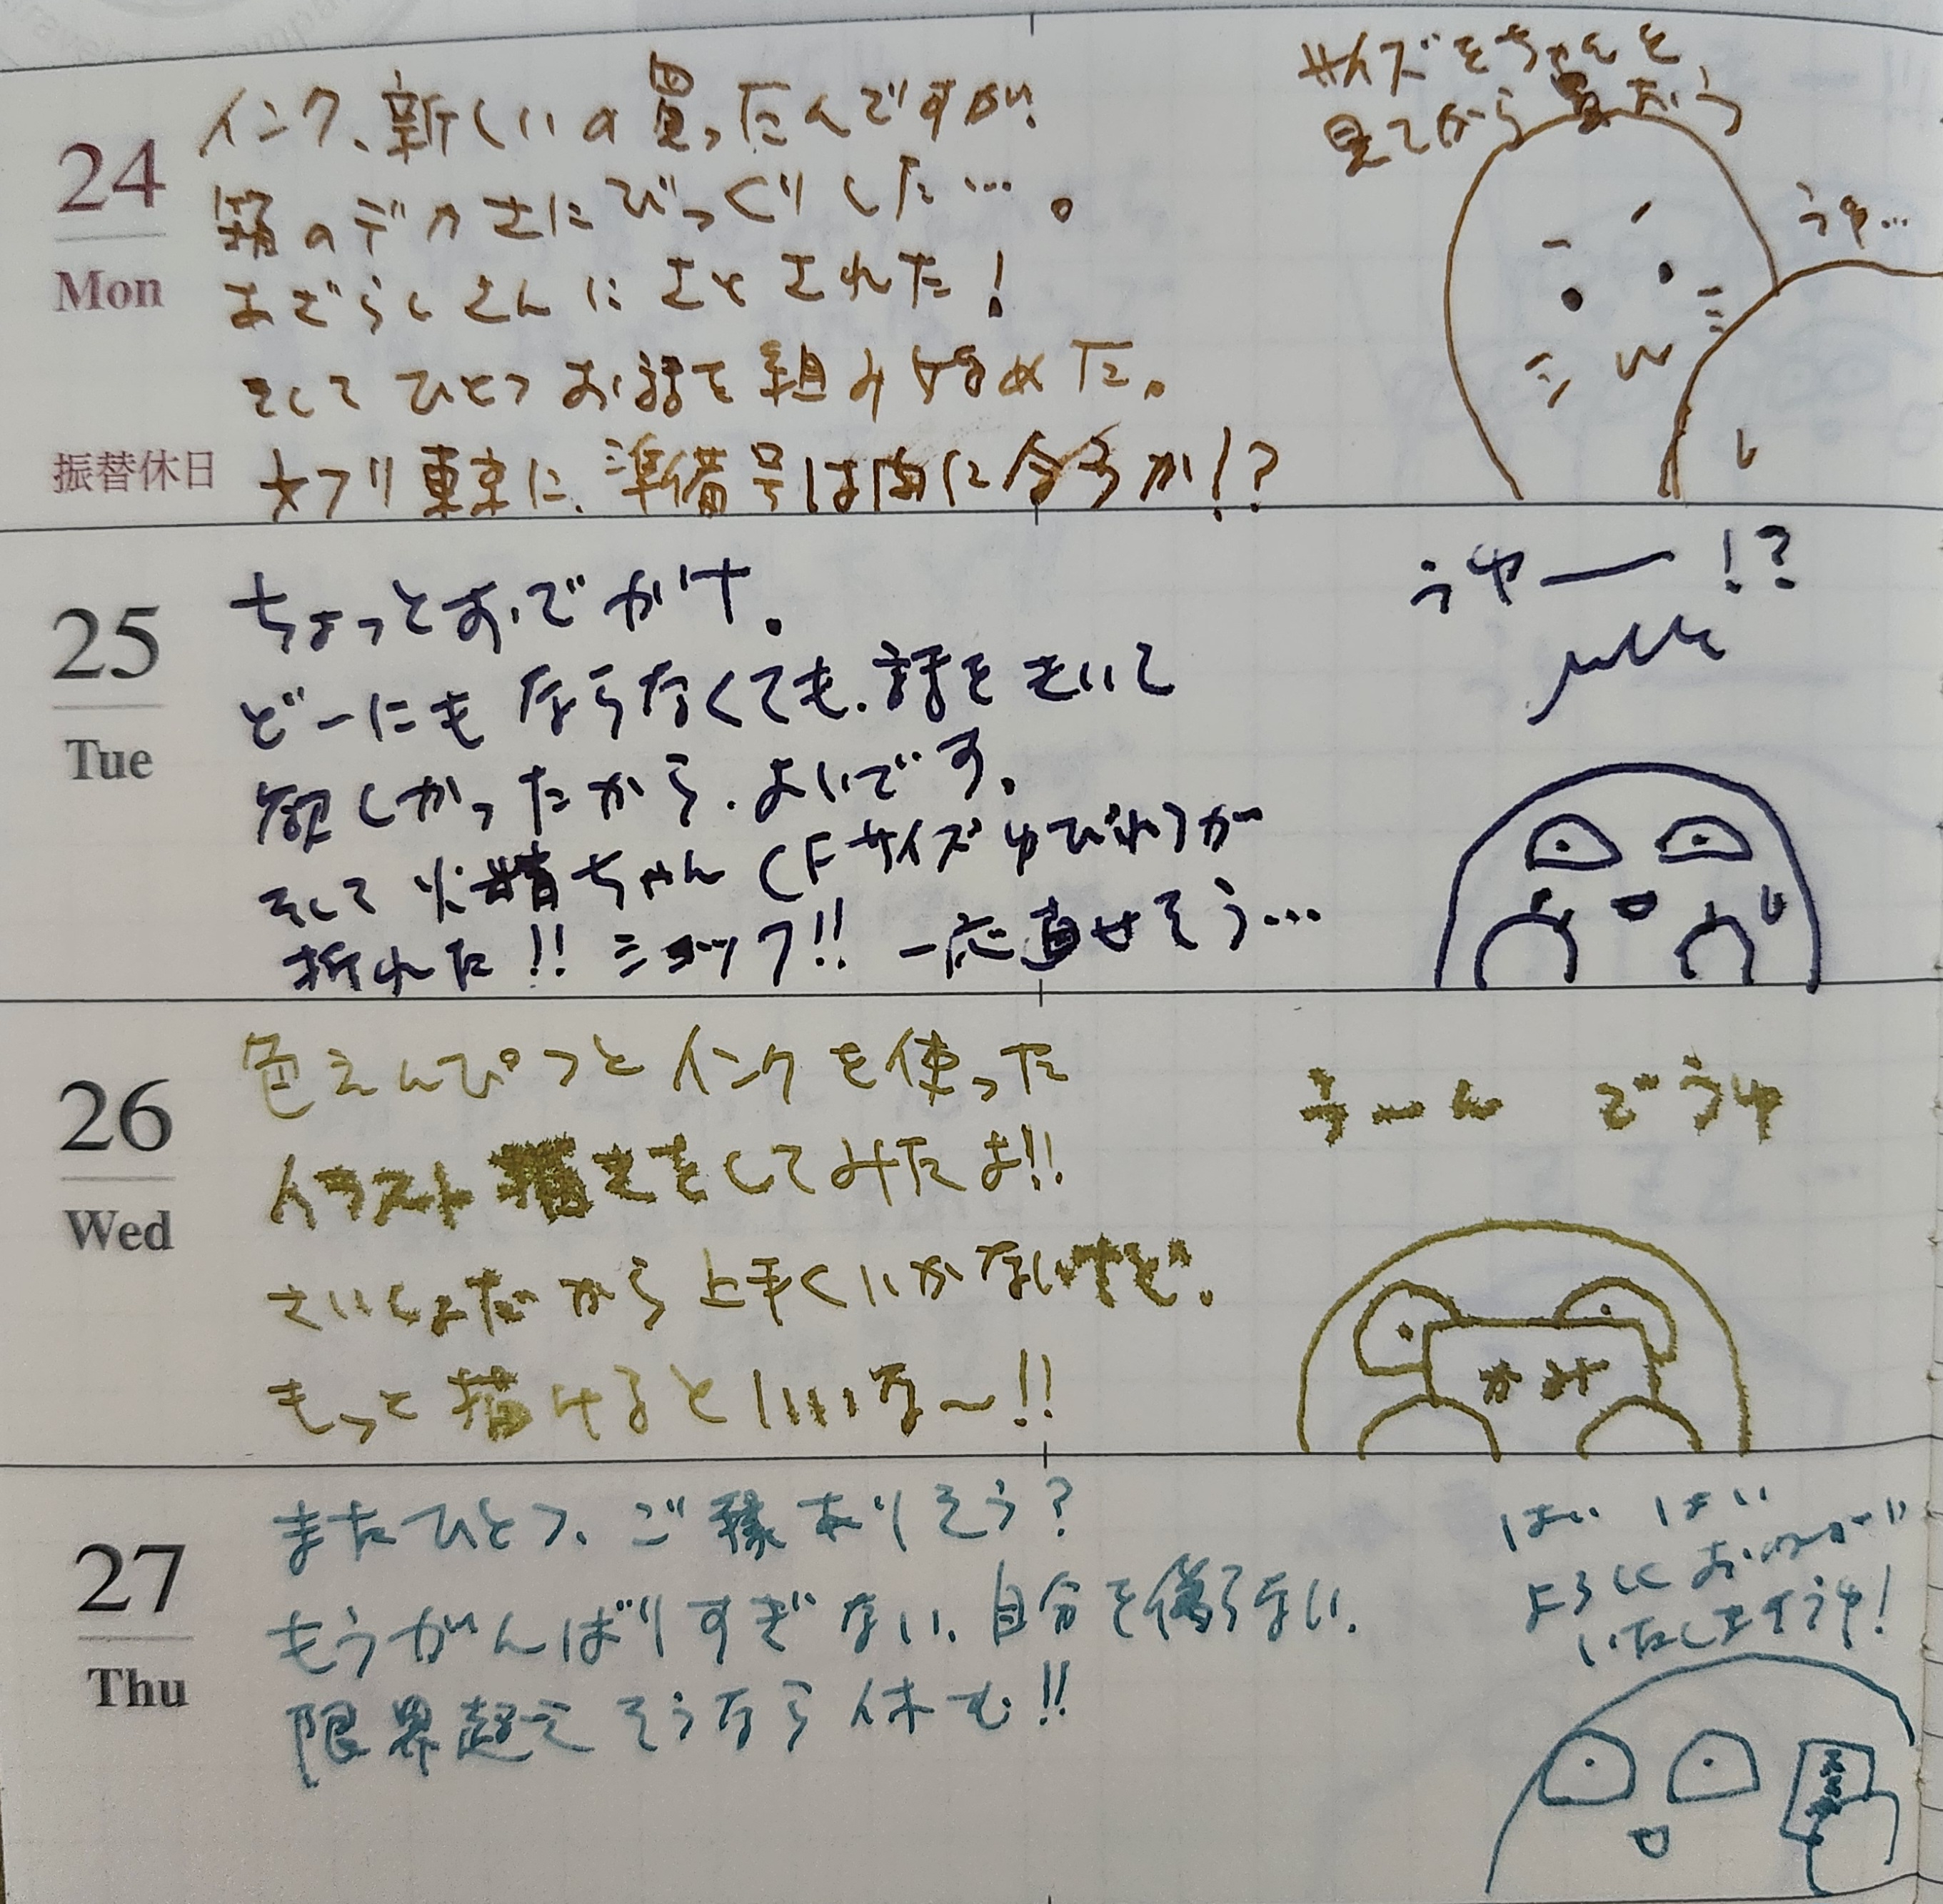 24
Mon
振替休日
インク、新しいの買ったんですが、
箱のデカさにびっくりした…。
あざらしさんにさとされた!
そしてひとつお話を組み始めた。
文フリ東京に、準備号は間に合うか!?
サイズをちゃんと
見てから買おう
うゆ…
25
Tue
ちょっとおでかけ。
どーにもならなくても、話をきいて
欲しかったから、よいです。
そして火精ちゃん(Fサイズゆびわ)が
折れた!! ショック!! 一応直せそう…
うゆー!?
26
Wed
色えんぴつとインクを使った
イラスト描きをしてみたよ!!
さいしょだから上手くいかないけど。
もっと描けるといいな〜!!
うーん どうゆ
かみ
27
Thu
またひとつ、ご縁ありそう?
もうがんばりすぎない、自分を偽らない、
限界超えそうなら休む!!
はい はい
よろしくおねがい
いたしますうゆ!